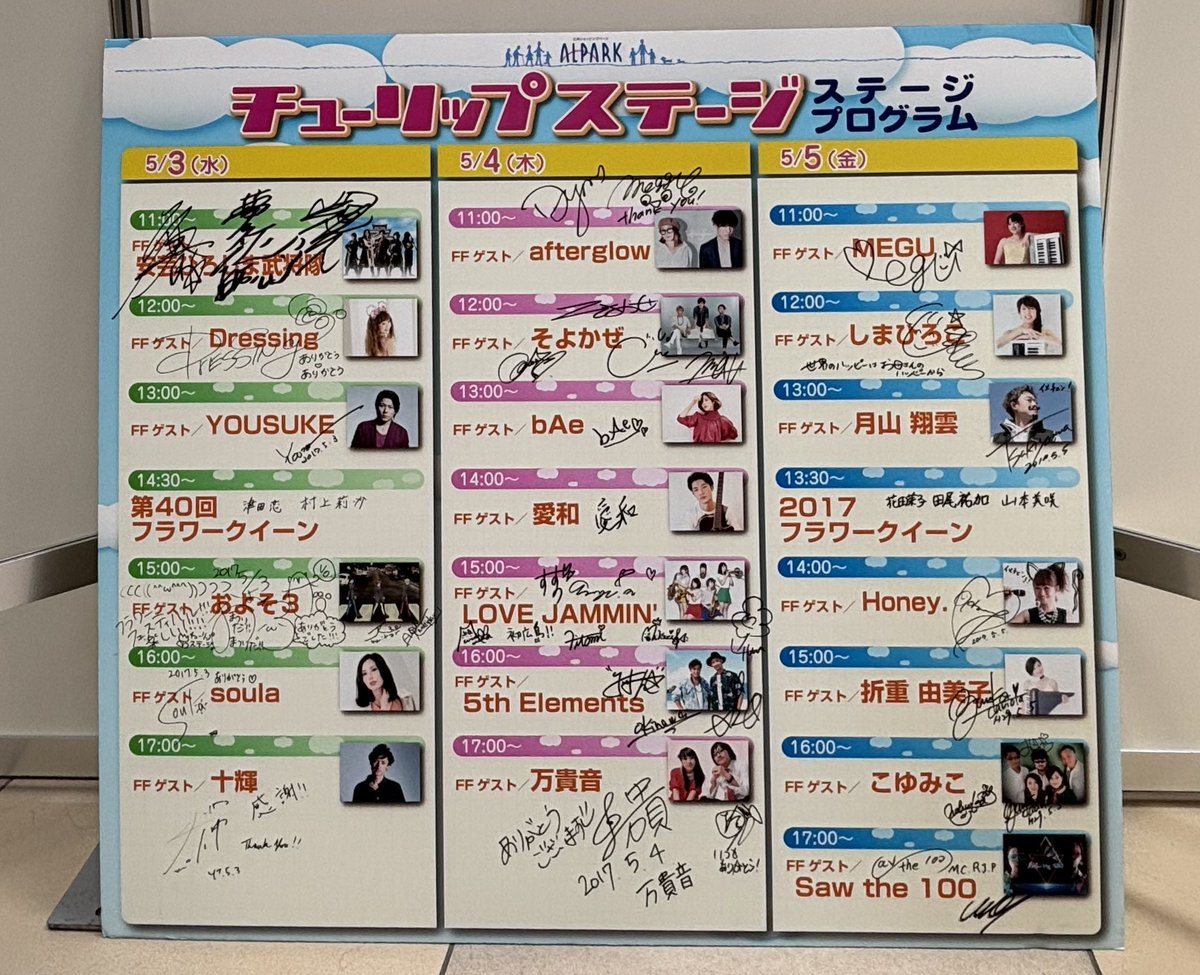 ALPARK
チューリップステージ
ステージ
プログラム
5/3(水)
11:00～
FFゲスト/
安芸ひろしま武将隊
12:00～
FFゲスト/Dressing
DRESSING
ありがとう
ありがとう
13:00～
FFゲスト/YOUSUKE
2017.5.3
14:30～
第40回
フラワークイーン
津田恋 村上莉沙
15:00～
2017 5/3
FFゲスト/およそ3
16:00～
2017.5.3 ありがとう♡
FFゲスト/soula
17:00～
FFゲスト/十輝
感謝!!
Thank You!!
5/4(木)
11:00～
thank you!
FFゲスト/afterglow
12:00～
FFゲスト/そよかぜ
13:00～
FFゲスト/bAe
bAe♡
14:00～
FFゲスト/愛和
愛和
15:00～
FFゲスト/
LOVE JAMMIN'
初広島!!
16:00～
FFゲスト/
5th Elements
17:00～
FFゲスト/万貴音
ありがとう
ございます
2017.5.4
万貴音
ありがとう!
5/5(金)
11:00～
FFゲスト/MEGU
Megu
12:00～
FFゲスト/しまひろこ
世界のハッピーはお母さんの
ハッピーから
13:00～
イメチェン!
FFゲスト/月山 翔雲
13:30～
2017
フラワークイーン
田尾祐加 山本美咲
14:00～
イメチェン!
FFゲスト/Honey.
15:00～
FFゲスト/折重 由美子
16:00～
FFゲスト/こゆみこ
17:00～
FFゲスト/
Saw the 100
M.C. R.I.P